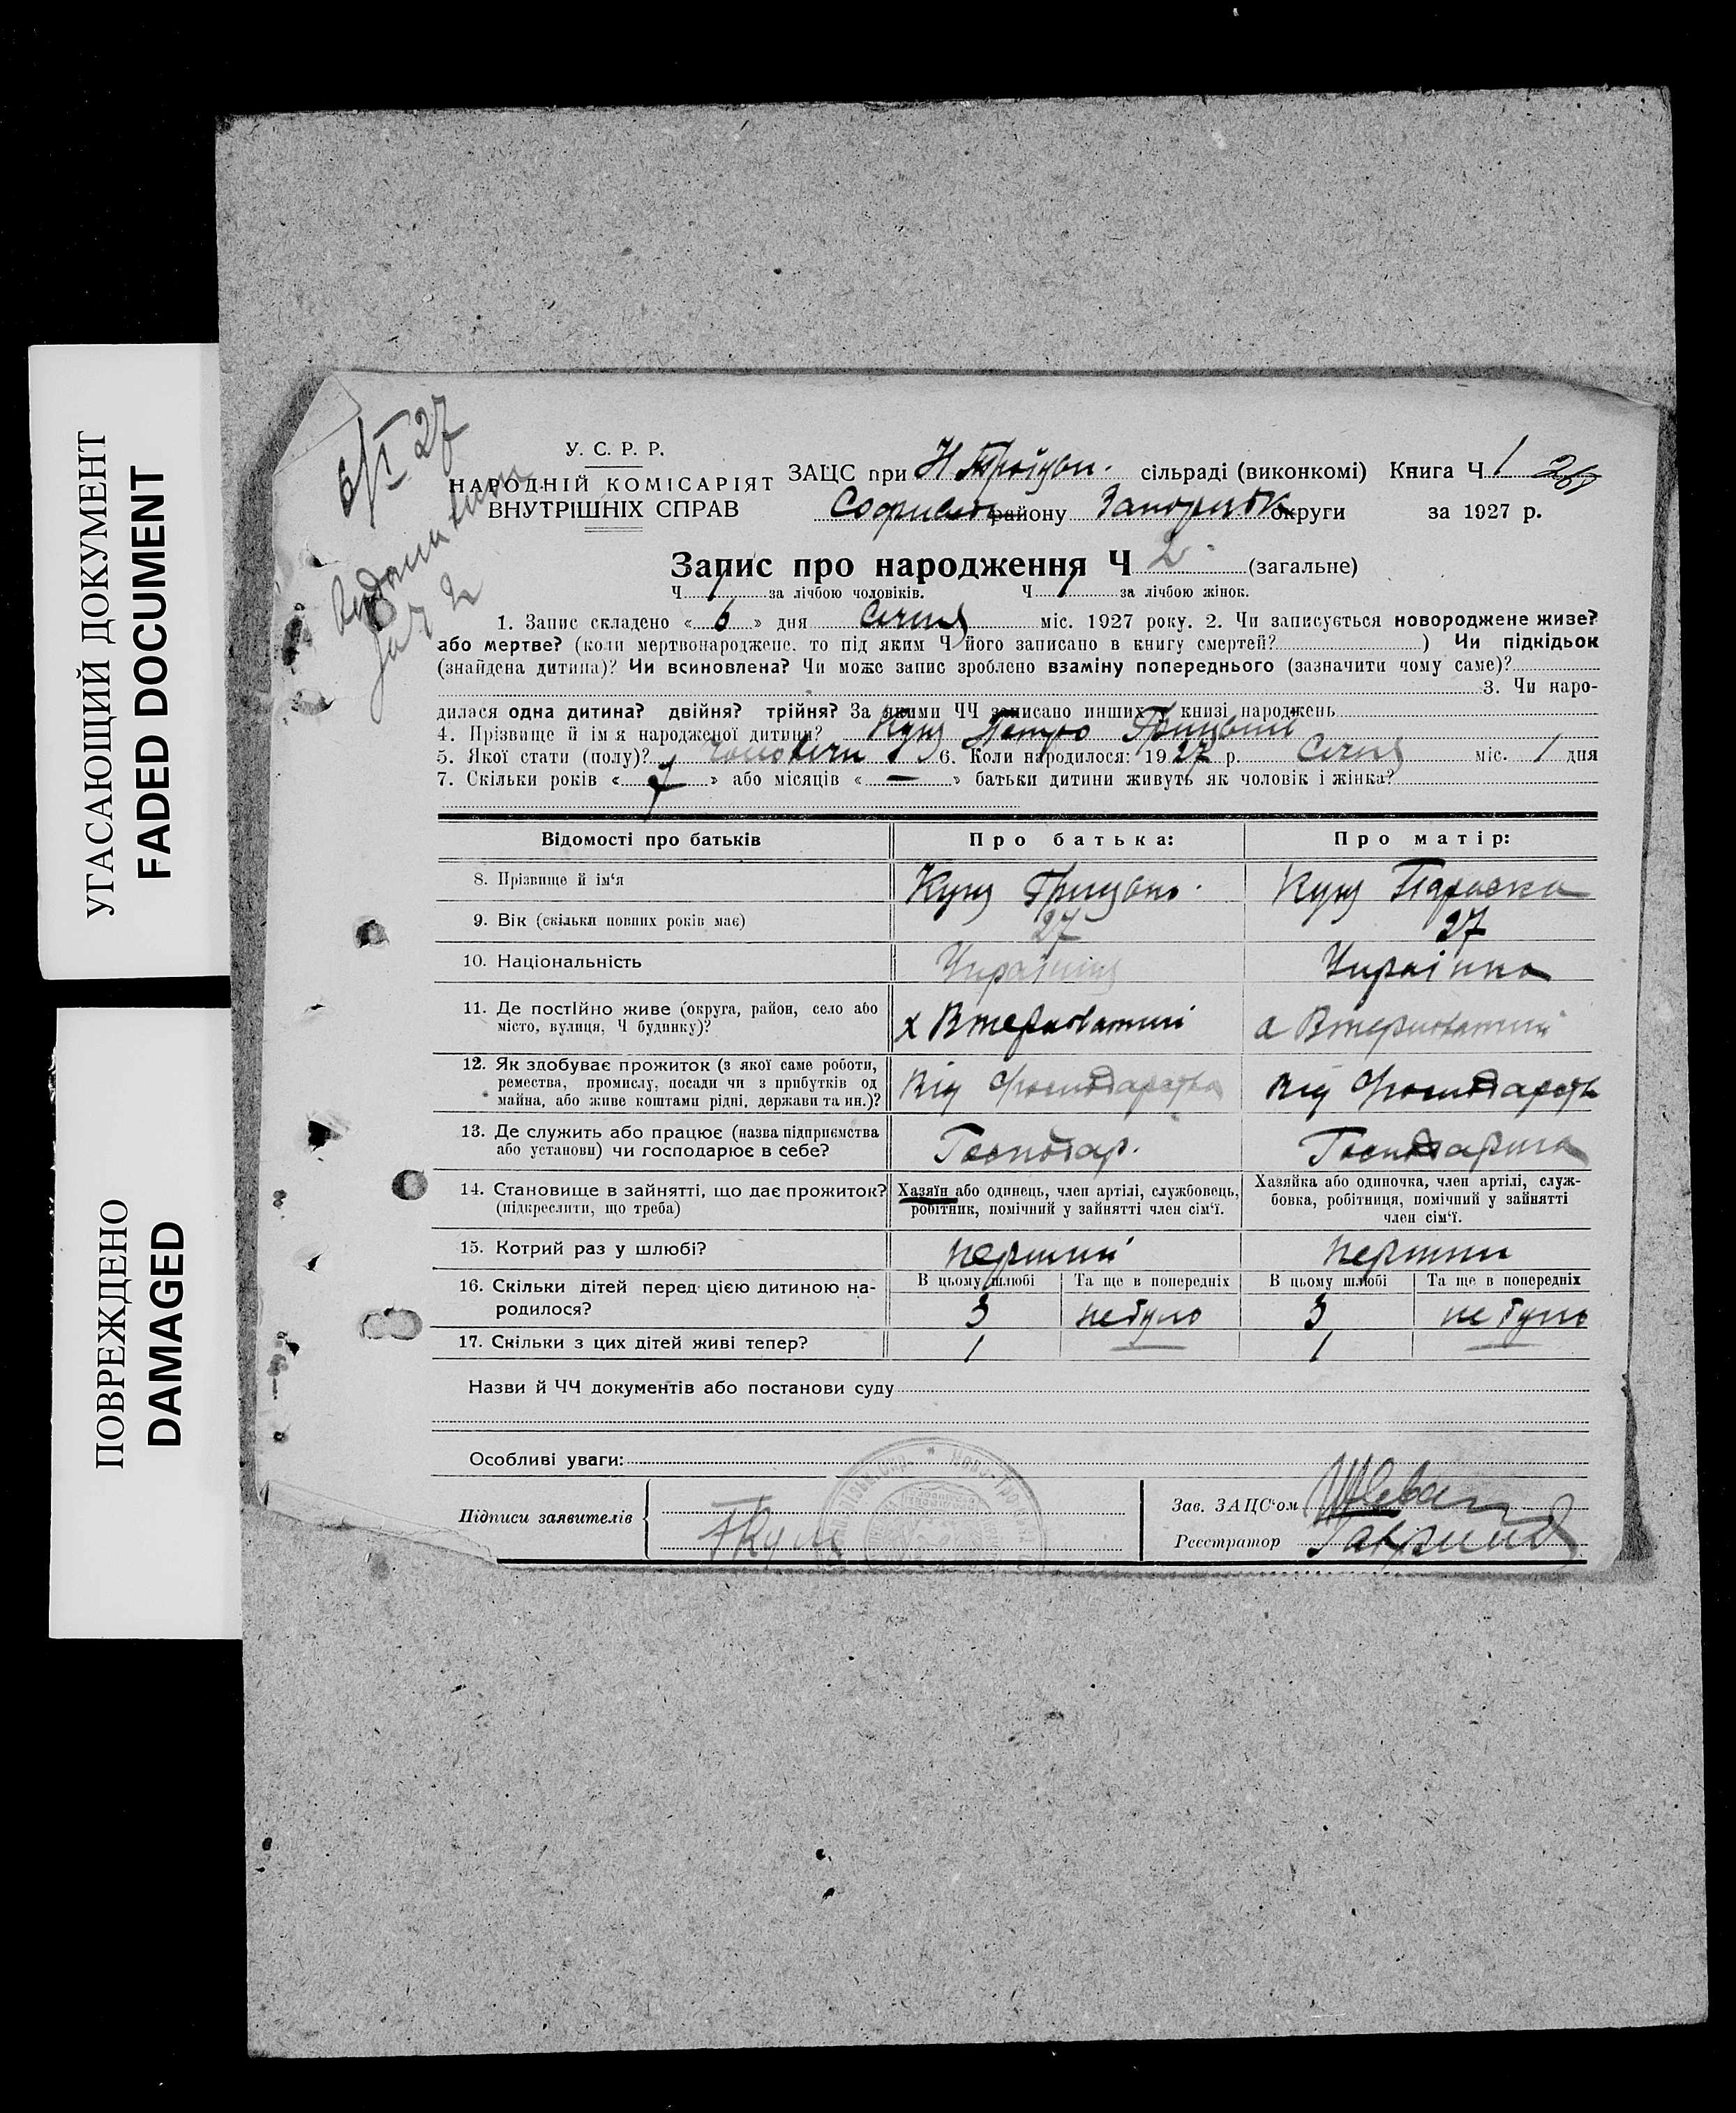 УГАСАЮЩИЙ ДОКУМЕНТ
FADED DOCUMENT
ПОВРЕЖДЕНО
DAMAGED
6/I 27
У. С. Р. Р.
НАРОДНІЙ КОМІСАРІЯТ
ВНУТРІШНІХ СПРАВ
ЗАЦС при Н сільраді (виконкомі) Книга Ч 1
району округи за 1927 р.
Запис про народження Ч 2 (загальне)
Ч 1 за лічбою чоловіків. Ч 1 за лічбою жінок.
1. Запис складено « 6 » дня Січня міс. 1927 року. 2. Чи записується новороджене живе?
або мертве? (коли мертвонароджене, то під яким Ч його записано в книгу смертей? ) Чи підкідьок
(знайдена дитина)? Чи всиновлена? Чи може запис зроблено взаміну попереднього (зазначити чому саме)?
3. Чи наро-
дилася одна дитина? двійня? трійня? За якими ЧЧ записано инших у книзі народжень
4. Прізвище й ім'я народженої дитини? Куц Петро
5. Якої стати (полу)? 6. Коли народилося: 1927 р. Січня міс. 1 дня
7. Скільки років « 7 » або місяців « — » батьки дитини живуть як чоловік і жінка?
Відомості про батьків Про батька: Про матір:
8. Прізвище й ім'я Куц Куц Параска
9. Вік (скільки повних років має) 27 27
10. Національність Украінец Украінка
11. Де постійно живе (округа, район, село або
місто, вулиця, Ч будинку)?
12. Як здобуває прожиток (з якої саме роботи,
ремества, промислу, посади чи з прибутків од
майна, або живе коштами рідні, держави та ин.)? Від Господарства Від Господарств
13. Де служить або працює (назва підприємства
або установи) чи господарює в себе? Господар. Господарка
14. Становище в зайнятті, що дає прожиток?
(підкреслити, що треба)
Хазяїн або одинець, член артілі, службовець,
робітник, помічний у зайнятті член сім'ї.
Хазяйка або одиночка, член артілі, служ-
бовка, робітниця, помічний у зайнятті
член сім'ї.
15. Котрий раз у шлюбі? перший перший
16. Скільки дітей перед цією дитиною на-
родилося?
В цьому шлюбі Та ще в попередніх В цьому шлюбі Та ще в попередніх
3 не було 3 не було
17. Скільки з цих дітей живі тепер? 1 — 1 —
Назви й ЧЧ документів або постанови суду
Особливі уваги:
Підписи заявителів
Зав. ЗАЦС'ом
Реєстратор